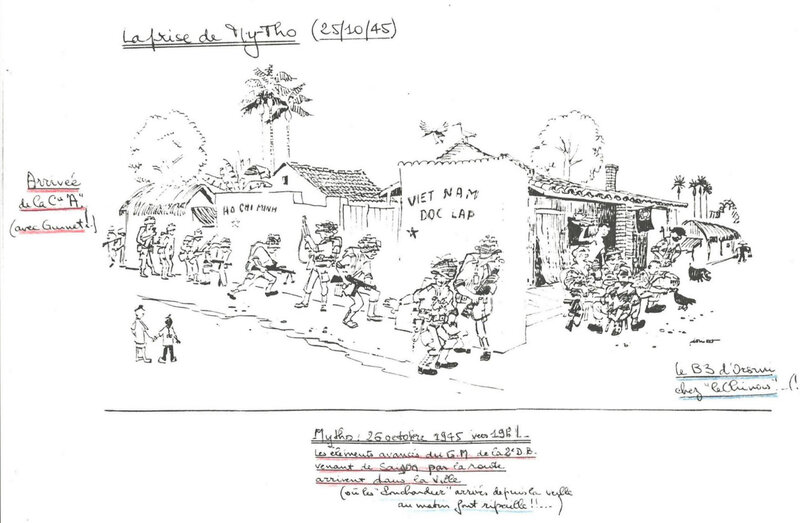 La prise de My-Tho (25/10/45)
Arrivée
de la Cie "A"
(avec
HO CHI MINH
VIET NAM
DOC LAP
le B3 d'
chez "le Chinois"...(!
Mytho: 26 octobre 1945 vers 19h!
Les éléments avancés du G.M. de la 2e D.B.
venant de Saigon par la route
arrivent dans la Ville
(où les "Ponchardier" arrivés depuis la veille
au matin font ripaille!!...)